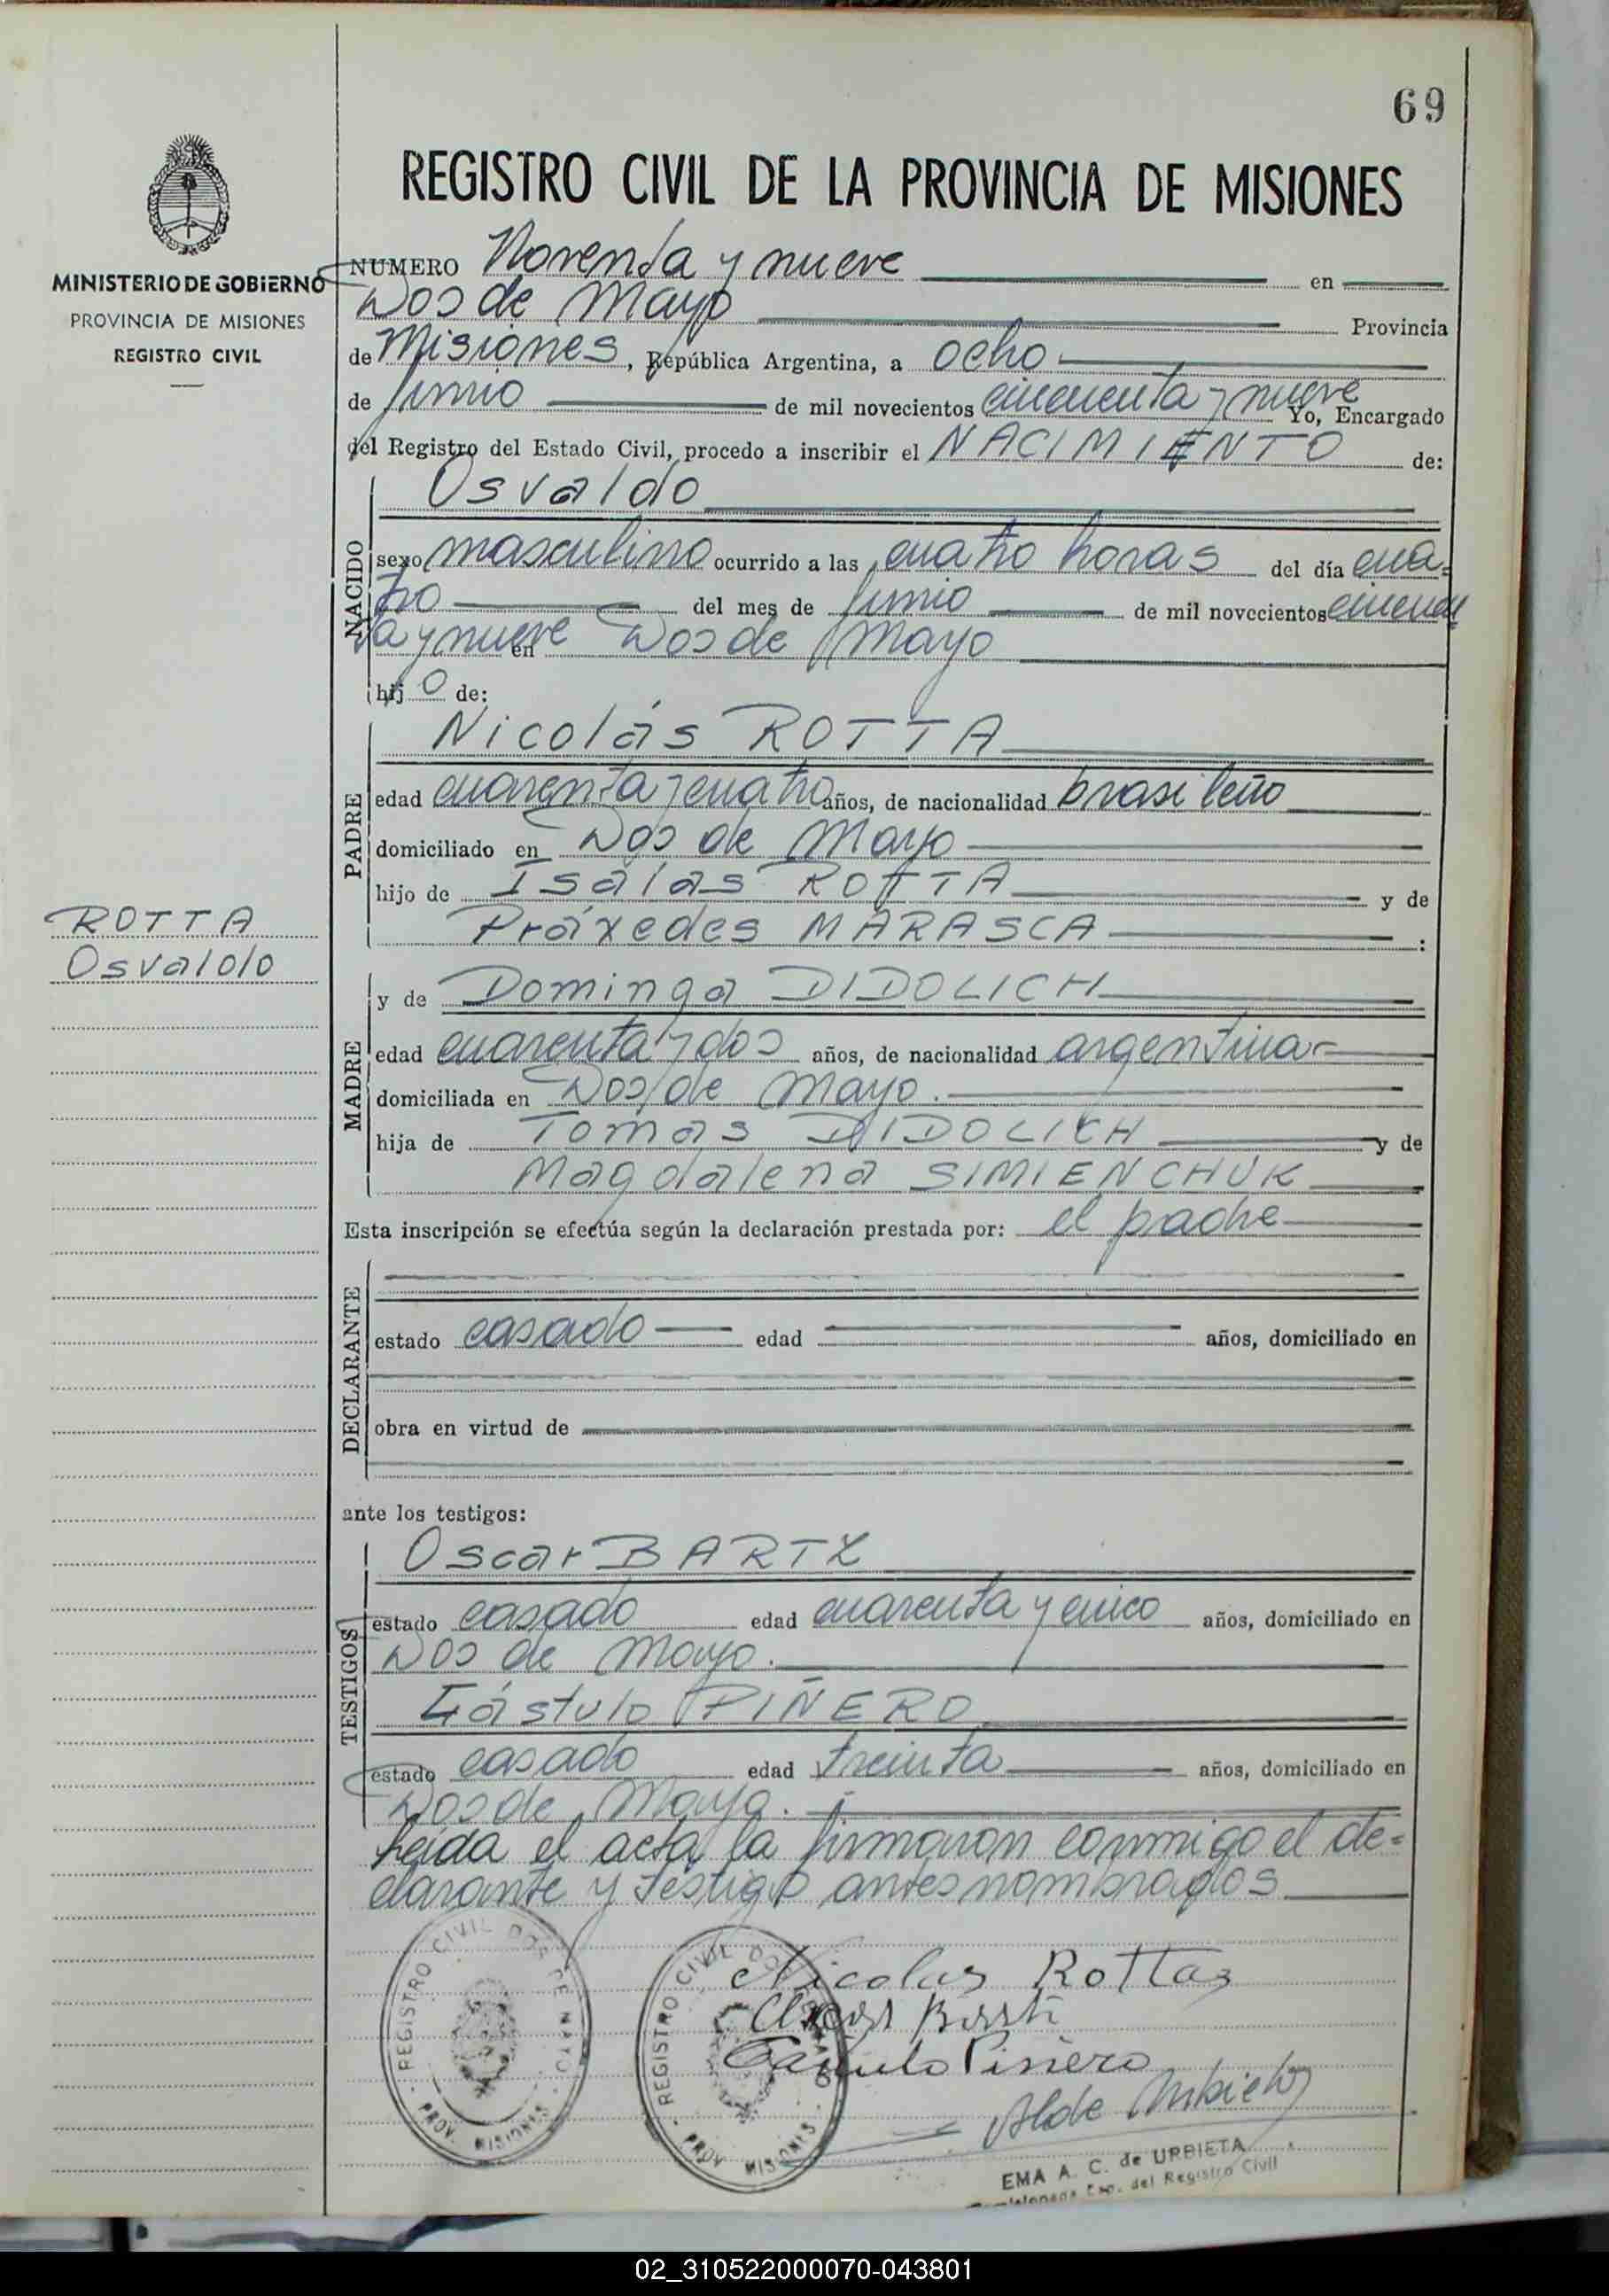 69
REGISTRO CIVIL DE LA PROVINCIA DE MISIONES
MINISTERIO DE GOBIERNO
PROVINCIA DE MISIONES
REGISTRO CIVIL
NUMERO Noventa y nueve en
Dos de Mayo Provincia
de Misiones, República Argentina, a ocho
de junio de mil novecientos cincuenta y nueve Yo, Encargado
del Registro del Estado Civil, procedo a inscribir el NACIMIENTO de:
NACIDO
Osvaldo
sexo masculino ocurrido a las cuatro horas del día cua=
tro del mes de junio de mil novecientos cincuen
ta y nueve en Dos de Mayo
hij o de:
PADRE
Nicolás ROTTA
edad cuarenta y cuatro años, de nacionalidad brasileño
domiciliado en Dos de Mayo
hijo de Isaías ROTTA y de
Práxedes MARASCA :
ROTTA
Osvaldo
MADRE
y de Dominga DIDOLICH
edad cuarenta y dos años, de nacionalidad argentina
domiciliada en Dos de Mayo.
hija de Tomas DIDOLICH y de
Magdalena SIMIENCHUK
Esta inscripción se efectúa según la declaración prestada por: el padre
DECLARANTE
estado casado edad años, domiciliado en
obra en virtud de
ante los testigos:
TESTIGOS
Oscar BARTZ
estado casado edad cuarenta y cinco años, domiciliado en
Dos de Mayo.
Cástulo PIÑERO
estado casado edad treinta años, domiciliado en
Dos de Mayo.
Leida el acta la firmaron conmigo el de=
clarante y testigos antes nombrados
REGISTRO CIVIL DOS DE MAYO
PROV. MISIONES
REGISTRO CIVIL DOS DE MAYO
PROV. MISIONES
Nicolas Rottas
Oscar
Piñero
EMA A. C. de URBIETA
del Registro Civil
02_310522000070-043801